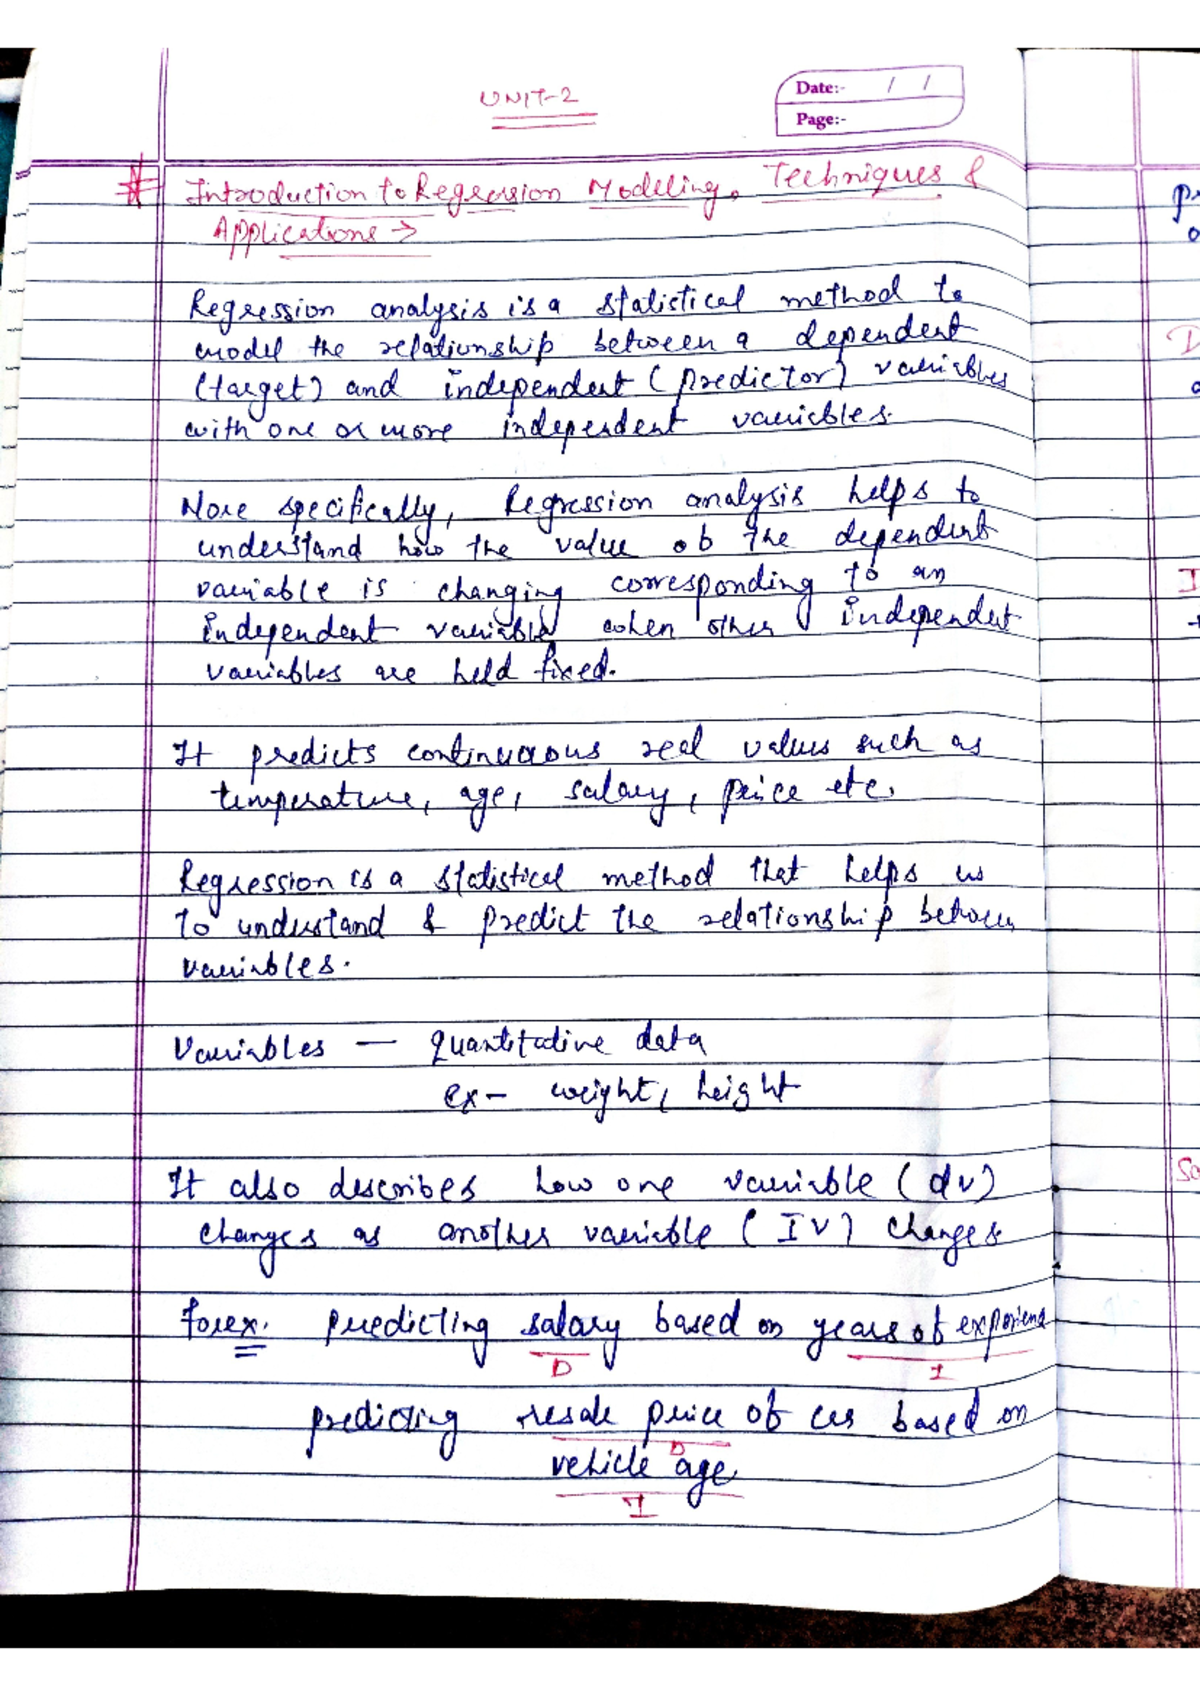 UNIT-2
Date:- / /
Page:-
# Introduction to Regression Modeling, Techniques &
Applications →
Regression analysis is a statistical method to
model the relationship between a dependent
(target) and independent (predictor) variables
with one or more independent variables.
More specifically, Regression analysis helps to
understand how the value of the dependent
variable is changing corresponding to an
independent variable when other independent
variables are held fixed.
It predicts continuous real values such as
temperature, age, salary, price etc.
Regression is a statistical method that helps us
to understand & predict the relationship between
variables.
Variables — quantitative data
ex- weight, height
It also describes how one variable (dv)
changes as another variable (IV) changes
forex. predicting salary based on years of experience
D I
predicting resale price of car based on
D
vehicle age
I